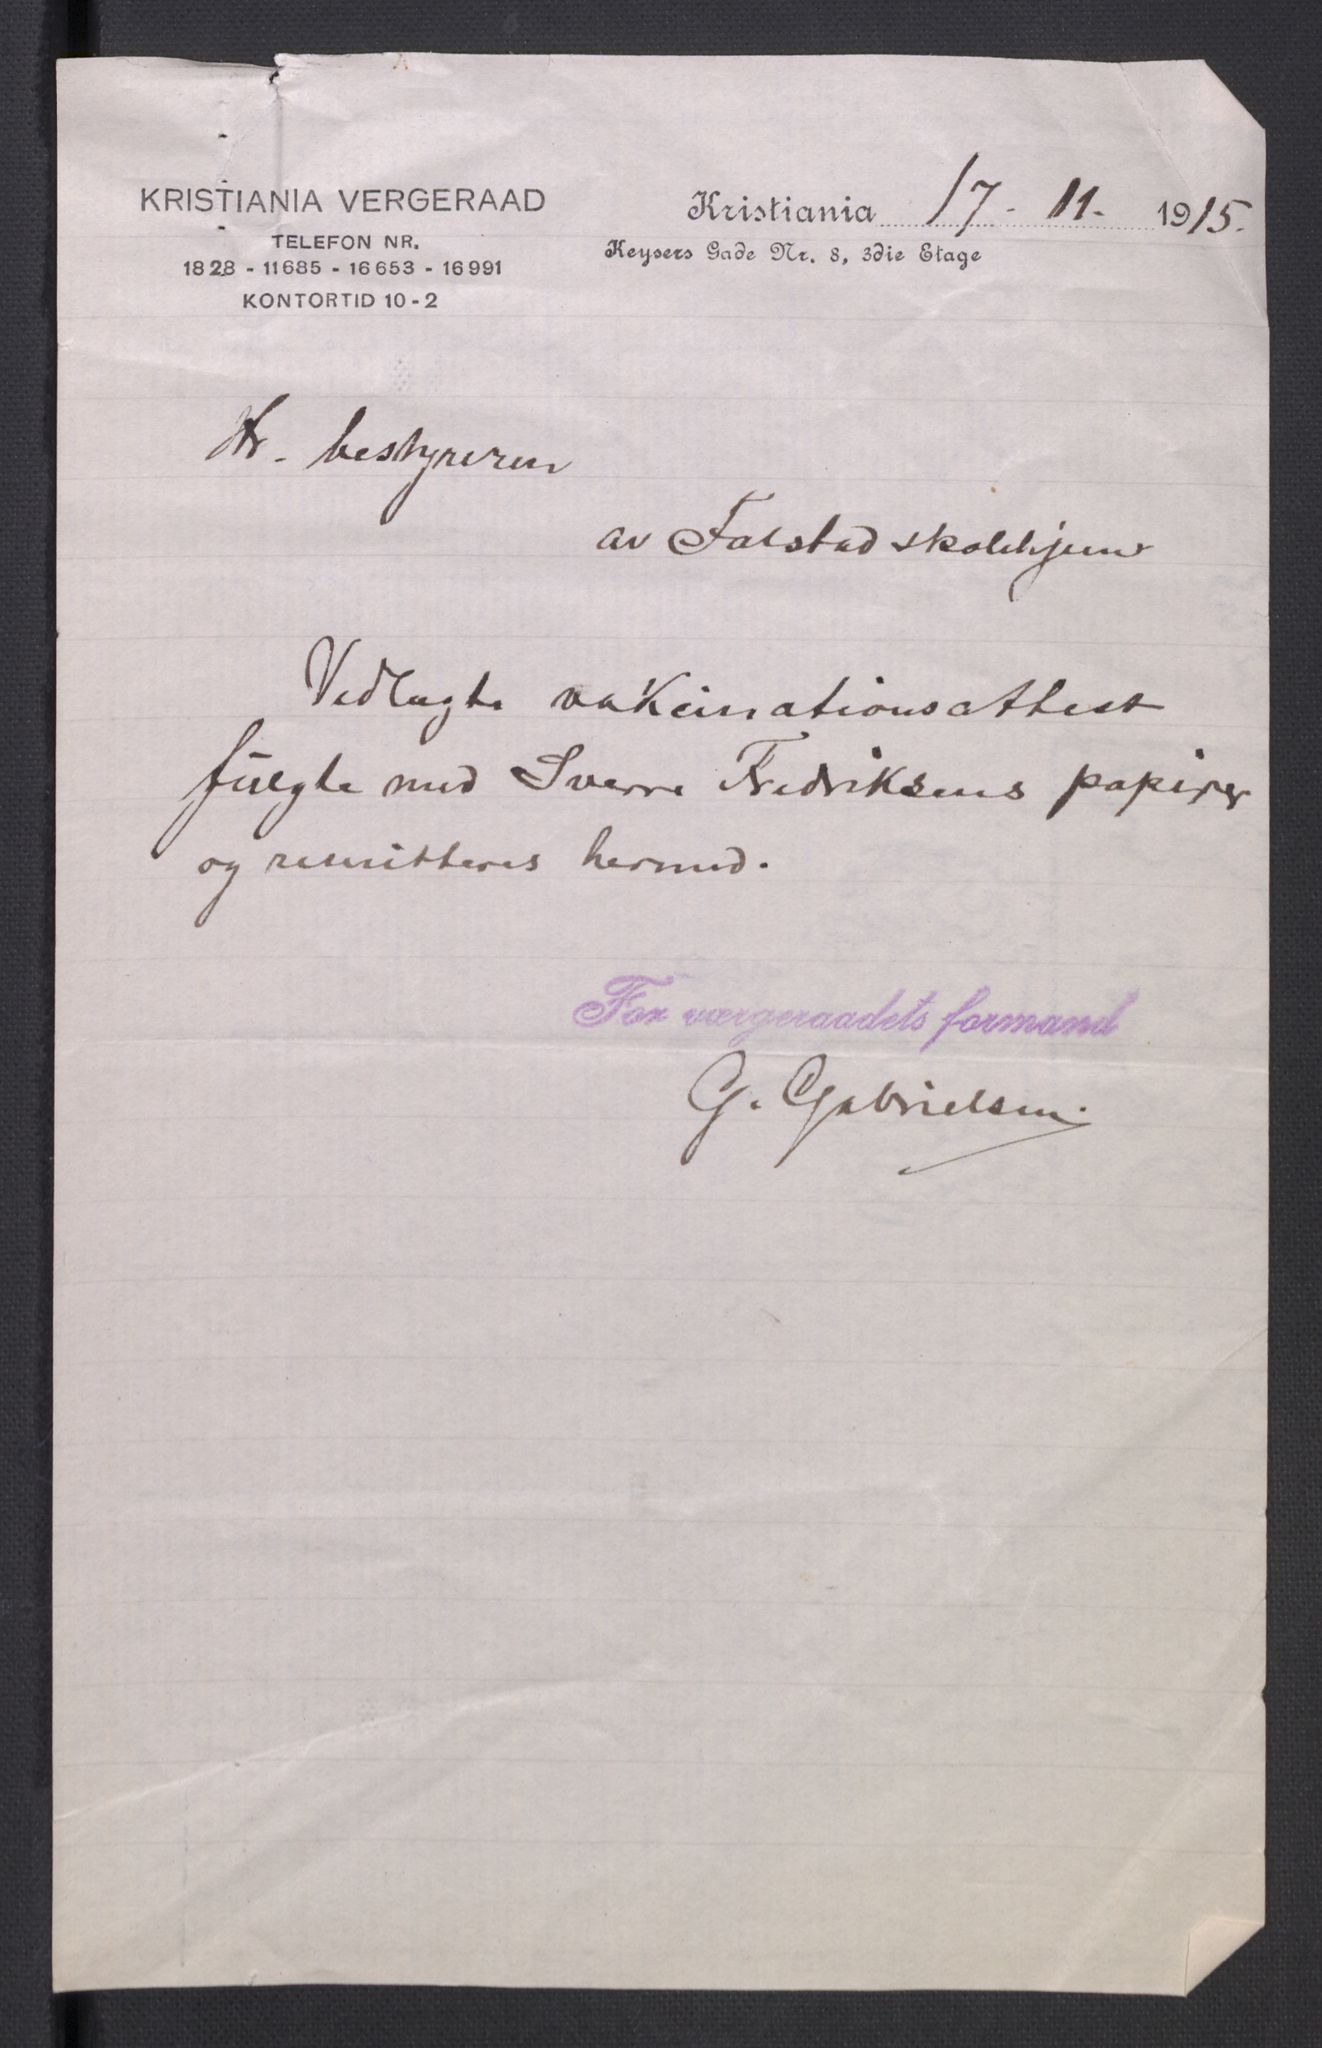 KRISTIANIA VERGERAAD
TELEFON NR.
1828 - 11685 - 16653 - 16991
KONTORTID 10-2
Kristiania 17. 11. 1915.
Keysers Gade Nr. 8, 3die Etage
Hr. bestyreren
av Falstad skolehjem
Vedlagte vakcinationsattest
fulgte med Sverre Fredriksens papirer
og remitteres hermed.
For værgeraadets formand
G. Gabrielsen.